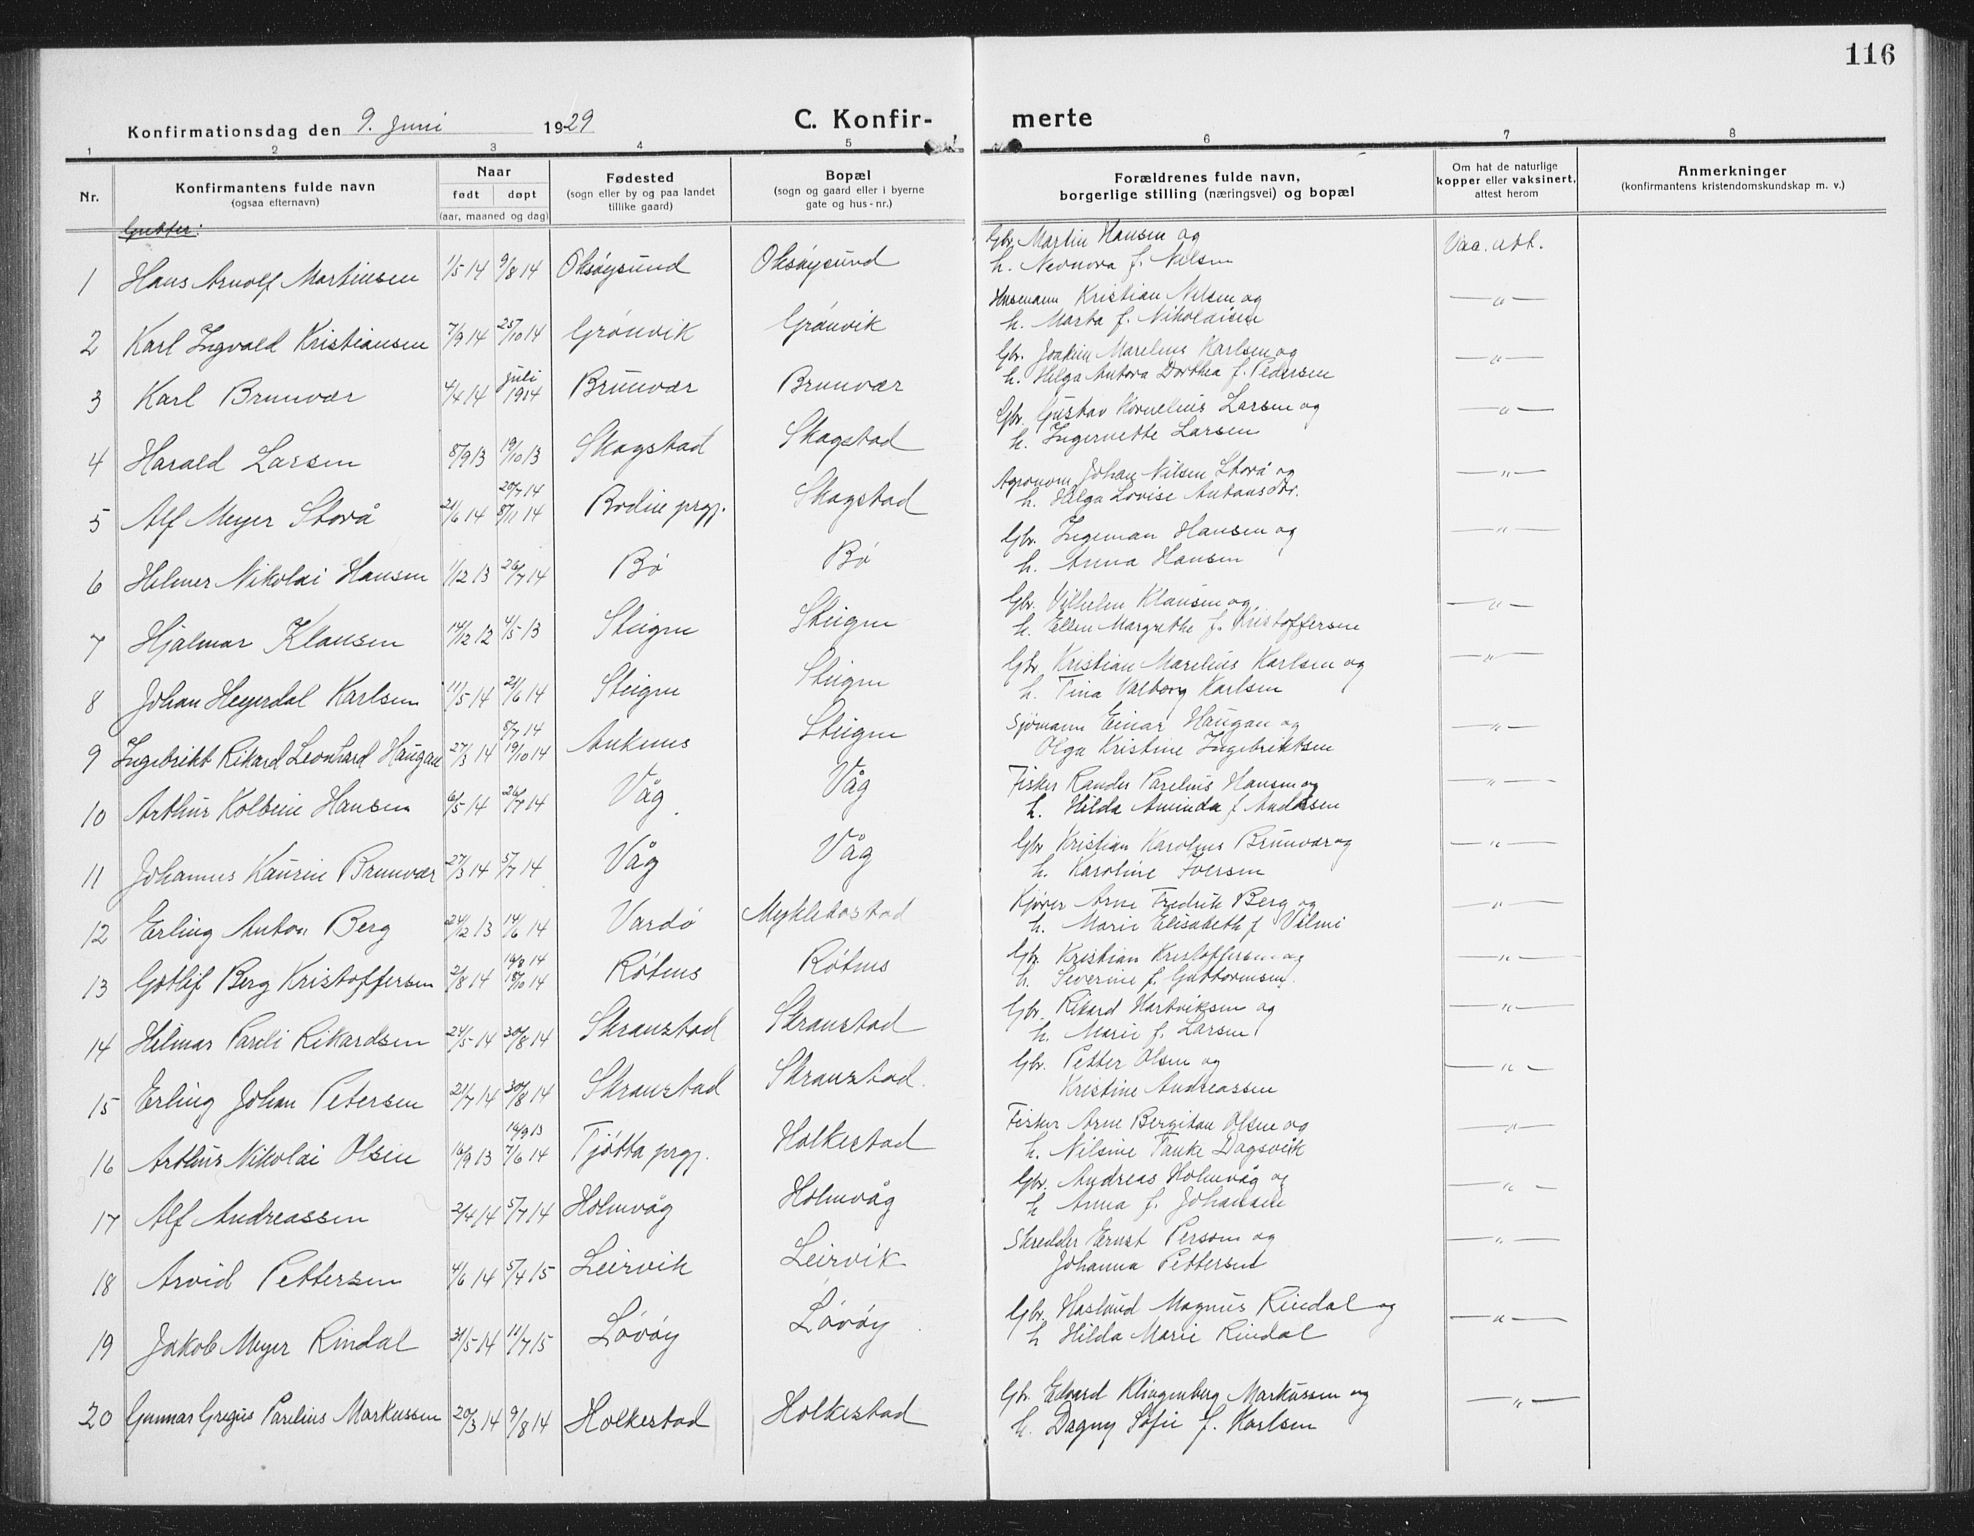 116
Konfirmationsdag den 9. Juni 1929
C. Konfir-merte
1 2 3 4 5 6 7 8
Nr.
Konfirmantens fulde navn
(ogsaa efternavn)
Naar
født døpt
(aar, maaned og dag)
Fødested
(sogn eller by og paa landet
tillike gaard)
Bopæl
(sogn og gaard eller i byerne
gate og hus-nr.)
Forældrenes fulde navn,
borgerlige stilling (næringsvei) og bopæl
Om hat de naturlige
kopper eller vaksinert,
attest herom
Anmerkninger
(konfirmantens kristendomskundskap m. v.)
Gutter:
1 Hans Arnolf Martinsen 1/5 14 9/8 14 Oksøysund Oksøysund Gbr. Martin Hansen og Vaa. att.
h. Neonora f. Nilsen
2 Karl Ingvald Kristiansen 7/9 14 25/10 14 Grønvik Grønvik Husmann Kristian Nilsen og —"—
h. Marta f. Nikolaisen
3 Karl Brunvær 4/4 14 juli 1914 Brunvær Brunvær Gbr. Joakim Marelius Karlsen og —"—
h. Helga Antora Dorthea f. Pedersen
4 Harald Larsen 8/9 13 19/10 13 Skagstad Skagstad Gbr. Gustav Kornelius Larsen og —"—
h. Ingernette Larsen
5 Alf Meyer Storå 21/6 14 20/7 14 8/11 14 Bodin prgj. Skagstad Agronom Johan Nilsen Storå og —"—
h. Helga Lovise Antonsdtr.
6 Helmer Nikolai Hansen 1/12 13 26/7 14 Bø Bø Gbr. Ingeman Hansen og —"—
h. Anna Hansen
7 Hjalmar Klausen 14/12 12 4/5 13 Steigen Steigen Gbr. Vilhelm Klausen og —"—
h. Ellen Margrethe f. Kristoffersen
8 Johan Heyerdal Karlsen 11/5 14 21/6 14 Steigen Steigen Gbr. Kristian Marelius Karlsen og —"—
h. Tina Valborg Karlsen
9 Ingebrikt Rikard Leonhard Haugan 27/3 14 8/7 14 19/10 14 Anknes Steigen Sjømann Einar Haugan og —"—
Olga Kristine Ingebriktsen
10 Arthur Kolbein Hansen 6/5 14 26/7 14 Våg Våg Fisker Rander Parelius Hansen og —"—
h. Hilda Aminda f. Andersen
11 Johannes Kaurin Brunvær 27/3 14 5/7 14 Våg Våg Gbr. Kristian Karolius Brunvær og —"—
h. Karoline Iversen
12 Erling Anton Berg 24/12 13 14/6 14 Vardø Myklebostad Kjører Arne Fredrik Berg og —"—
h. Marie Elisabeth f. Vilmi
13 Gotlif Berg Kristoffersen 2/8 14 14/8 14 18/10 14 Røtnes Røtnes Gbr. Kristian Kristoffersen og —"—
h. Severine f. Guttormsen.
14 Helmar Pareli Rikardsen 24/5 14 30/8 14 Skranstad Skranstad Gbr. Rikard Hartviksen og —"—
h. Marie f. Larsen
15 Erling Johan Petersen 21/7 14 30/8 14 Skranstad Skranstad. Gbr. Petter Olsen og —"—
Kristine Andreassen
16 Arthur Nikolai Olsen 16/9 13 14/9 13 7/6 14 Tjøtta prgj. Holkestad Fisker Arne Bergitan Olsen og —"—
h. Nilsine Tanke Dagsvik
17 Alf Andreassen 2/4 14 5/7 14 Holmvåg Holmvåg Gbr. Andreas Holmvåg og —"—
h Anna f. Johansen
18 Arvid Pettersen 4/6 14 5/4 15 Leirvik Leirvik Skredder Ernst Persson og —"—
Johanna Pettersen
19 Jakob Meyer Rindal 31/5 14 11/7 15 Løvøy Løvøy Gbr. Haslund Magnus Rindal og —"—
h Hilda Marie Rindal
20 Gunnar Gregus Parelius Markussen 20/3 14 9/8 14 Holkestad Holkestad Gbr. Edvard Klingenberg Markussen og —"—
h. Dagny Sofie f. Karlsen